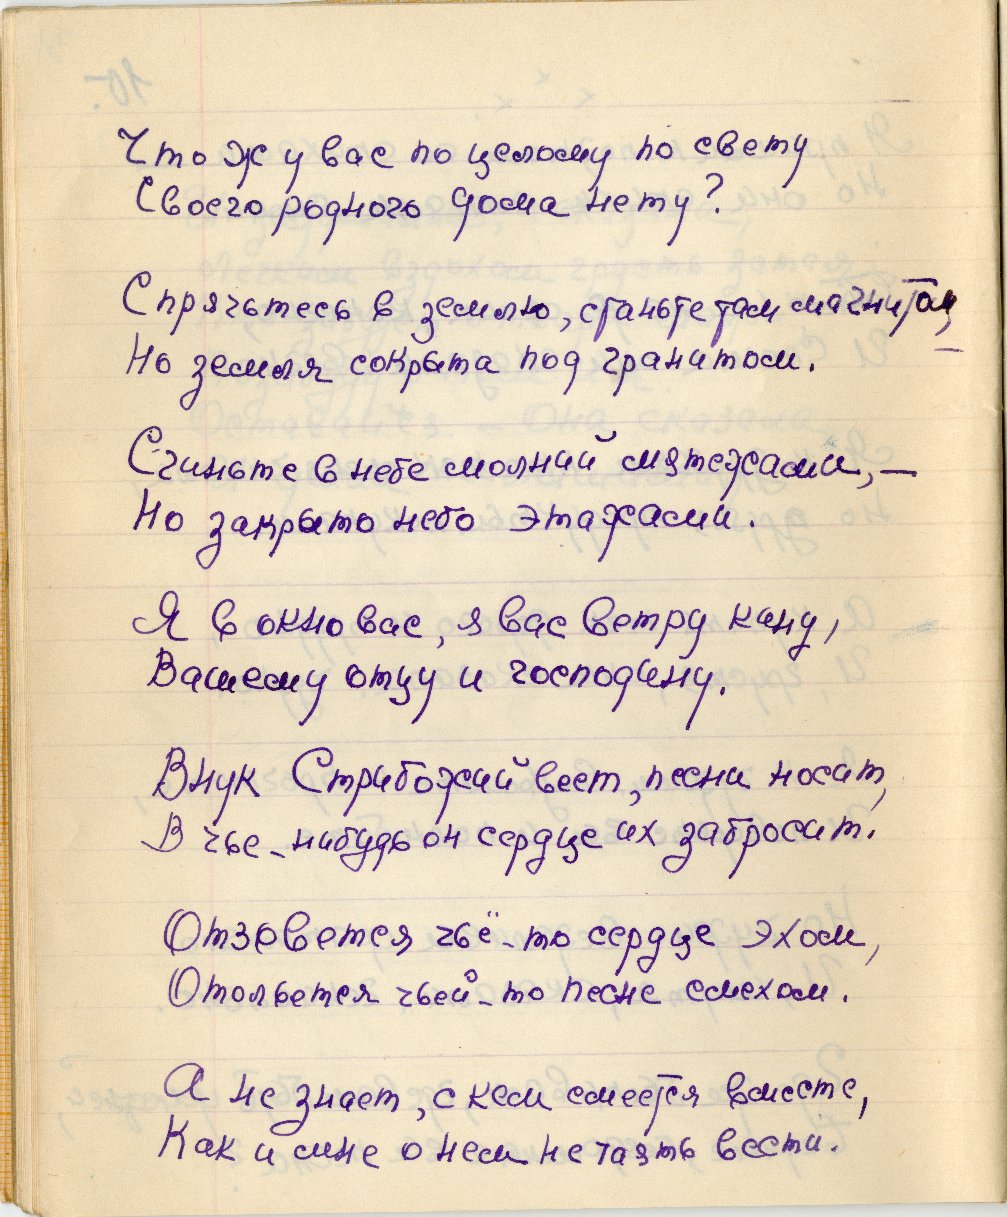 Что ж у вас по целому по свету
Своего родного дома нету?
Спрячьтесь в землю, станьте там магнитом, —
Но земля сокрыта под гранитом.
Сгиньте в небе молний мятежами, —
Но закрыто небо этажами.
Я в окно вас, я вас ветру кину,
Вашему отцу и господину.
Внук Стрибожий веет, песни носит,
В чье-нибудь он сердце их забросит.
Отзовется чьё-то сердце эхом,
Отольется чьей-то песне смехом.
А не знает, с кем смеется вместе,
Как и мне о нем не таять вести.